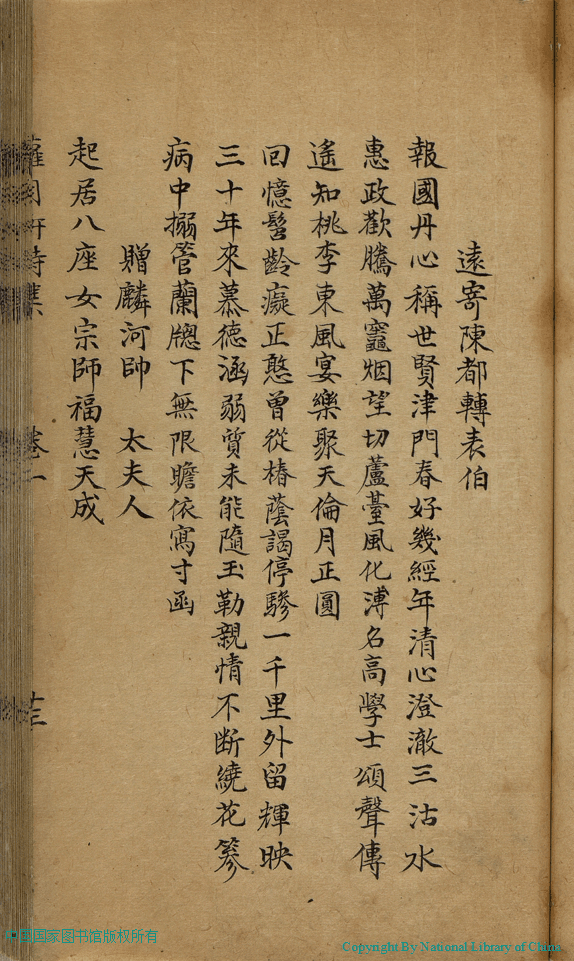 遠寄陳都轉表伯
報國丹心稱世賢津門春好幾經年清心澄澈三沽水
惠政歡騰萬竈烟望切蘆臺風化溥名高學士頌聲傳
遙知桃李東風宴樂聚天倫月正圓
回憶髫齡癡正憨曾從椿蔭謁停驂一千里外留輝映
三十年來慕德涵弱質未能隨玉勒親情不斷繞花篸
病中搦管蘭牕下無限瞻依寫寸函
贈麟河帥 太夫人
起居八座女宗師福慧天成
詩集 卷一
中国国家图书馆版权所有
Copyright By National Library of China